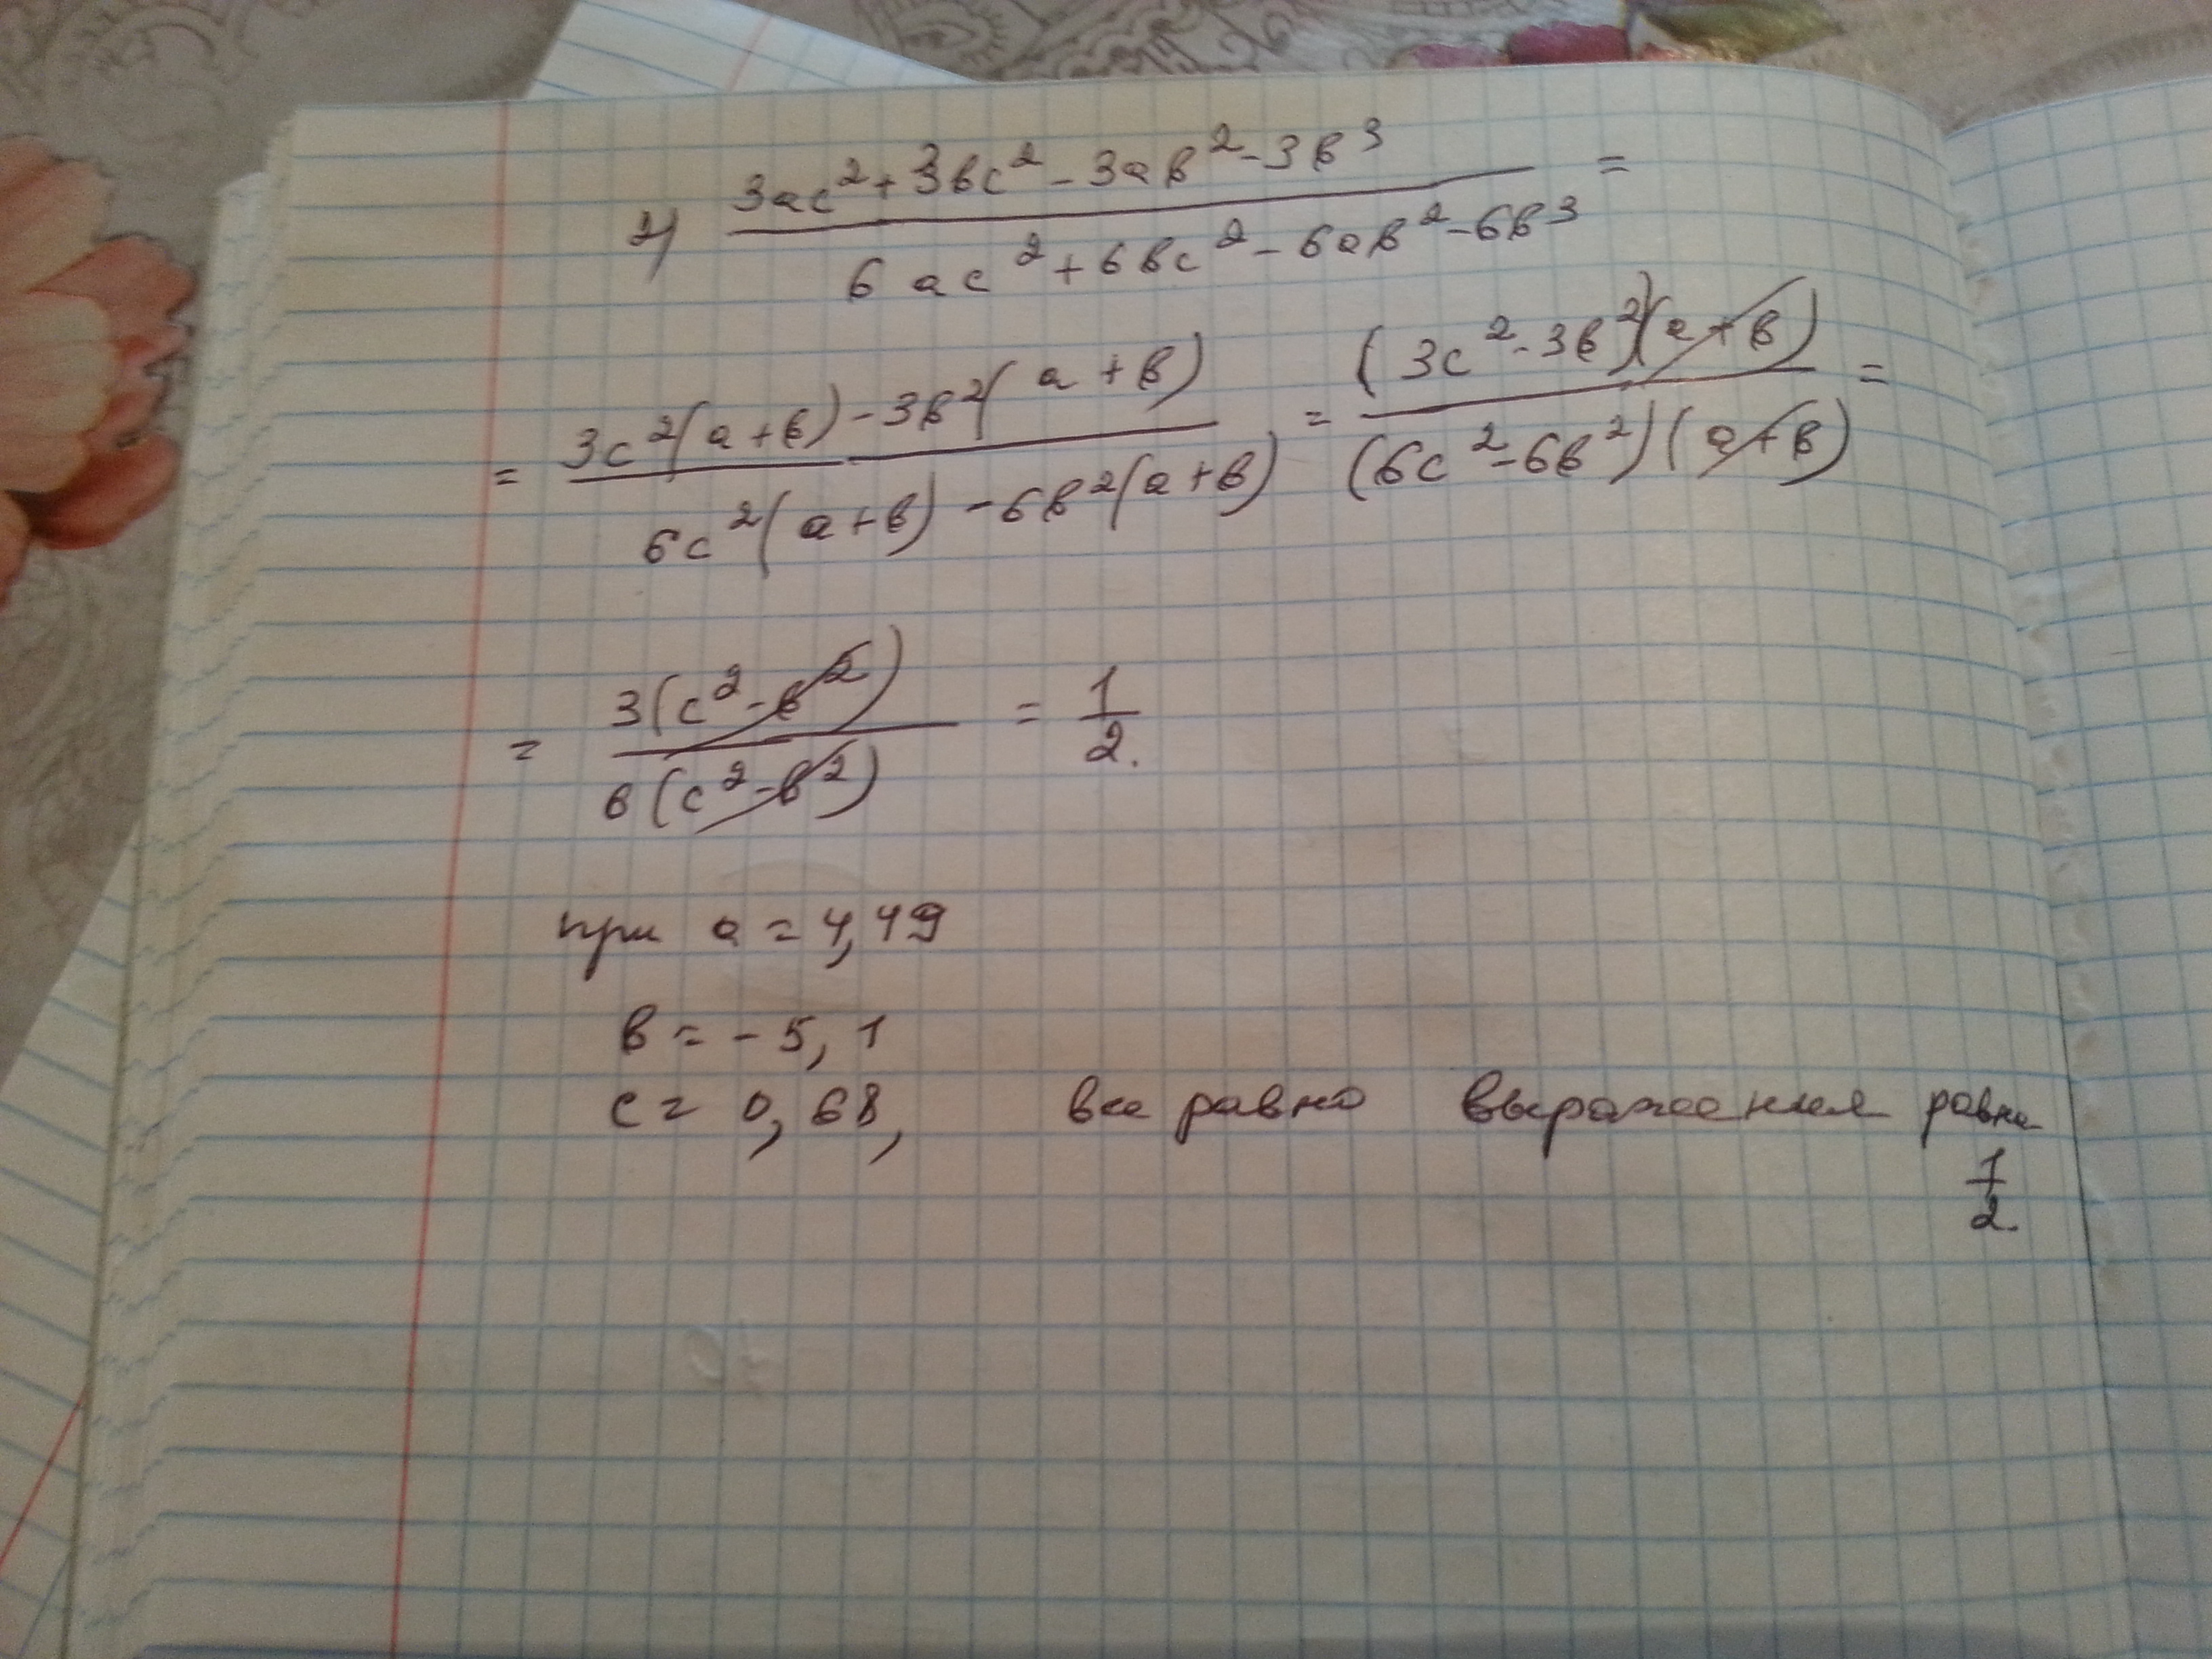 2) (3ac² + 3вc² - 3ав² - 3в³) / (6ac² + 6вc² - 6ав² - 6в³) =
= (3c²(a+в) - 3в²(a+в)) / (6c²(a+в) - 6в²(a+в)) = ((3c² - 3в²)(a+в)) / ((6c² - 6в²)(a+в)) =
= 3(c² - в²) / 6(c² - в²) = 1/2.
при a = 4,49
в = - 5, 1
c = 0, 68, все равно выражения равны
1/2.